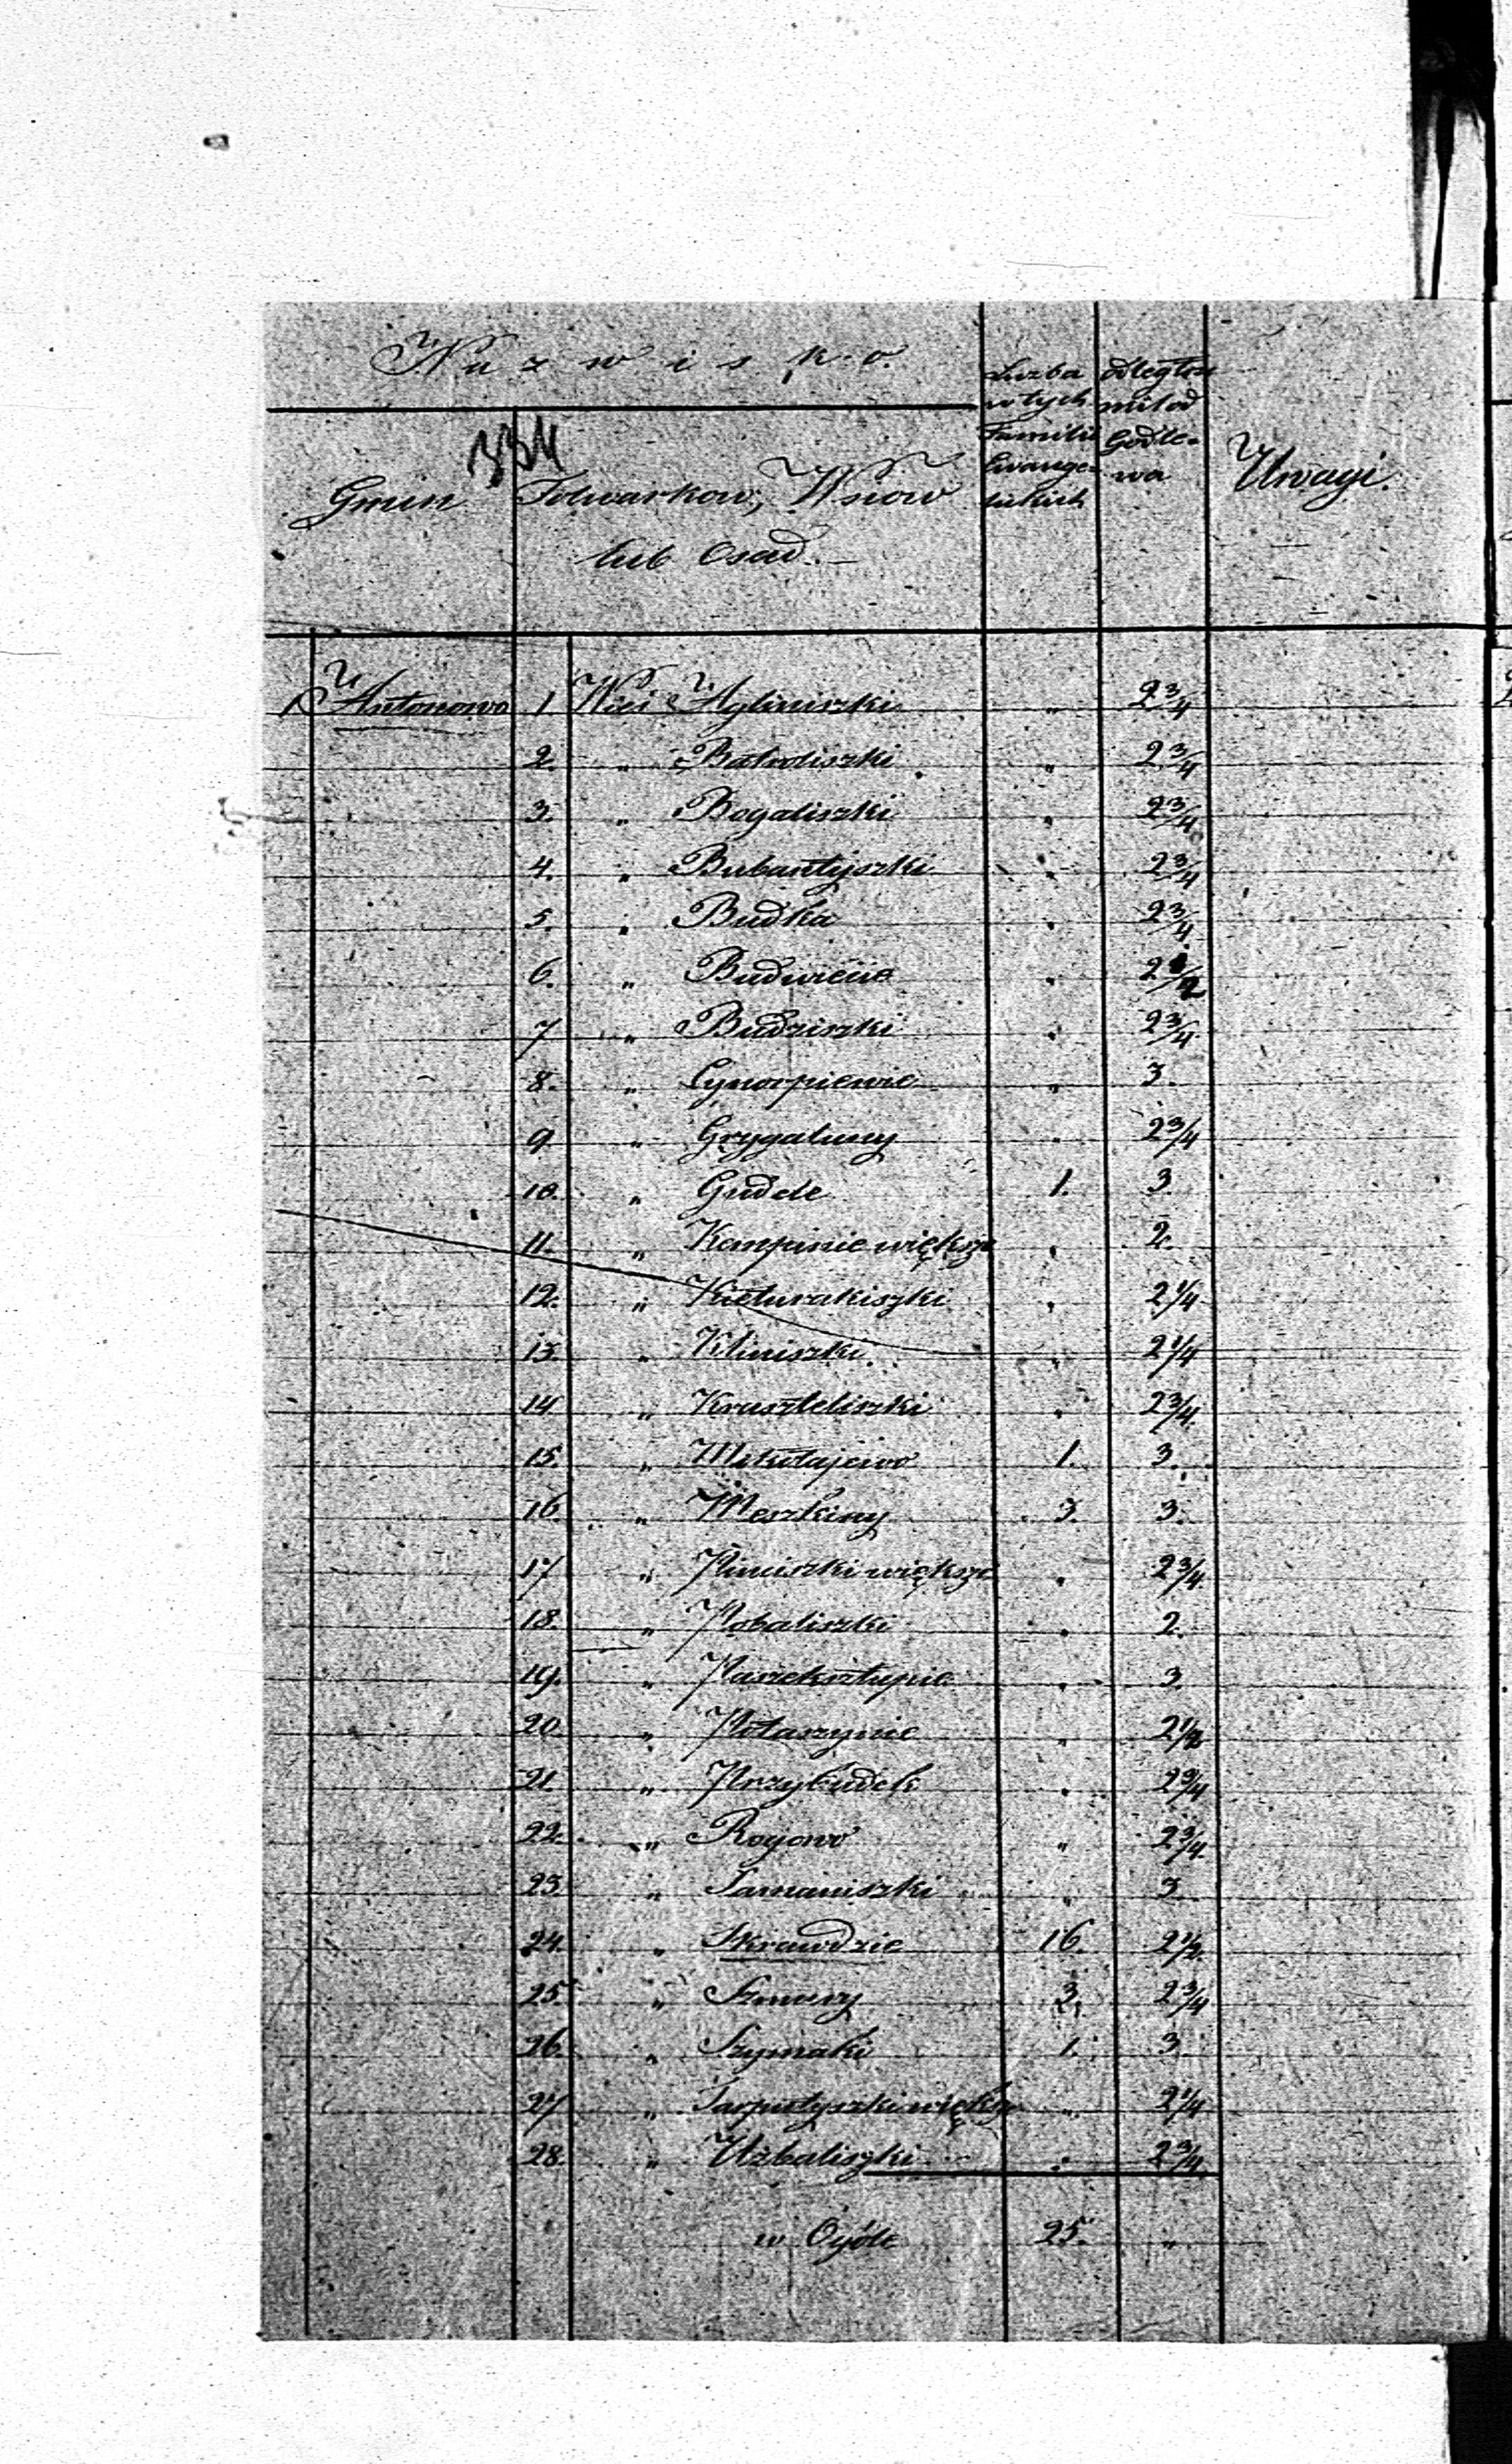 Nazwisko
334
Gmin
Folwarkow, Wsiow
lub Osad.
Liczba
w tych
Familii
Ewange-
lickich
odległosc
mil od
Godle-
wa
Uwagi.
1 Antonowo 1 Wieś Agliniszki " 2 3/4
2. " Batwoliszki " 2 3/4
3. " Bogaliszki " 2 3/4
4. " Bubantyszki " 2 3/4
5. " Budka " 2 3/4
6. " Budwiecie " 2 1/2
7 " Budziszki " 2 3/4
8. " Cynorpiewie " 3.
9. " Grygaluny " 2 3/4
10. " Gudele 1. 3.
11. " Kempinie większe " 2.
12. " Kieturakiszki " 2 1/4
13. " Kliniszki " 2 1/4
14 " Kruszteliszki " 2 3/4
15. " Mikołajewo 1. 3.
16. " Meszkiny 3. 3.
17 " Piniszki większe " 2 3/4
18. " Pobaliszki " 2.
19. " Paszeksztupie " 3.
20. " Potaszynie " 2 1/2
21. " Przybudek " 2 3/4
22. " Rogowo " 2 3/4
23. " Samaniszki " 3.
24. " Skrawdzie 16. 2 1/2
25. " Szmury 3. 2 3/4
26. " Szymaki 1. 3.
27 " Tarputyszki większe " 2 1/4
28. " Użbaliszki " 2 3/4
w Ogóle 25. "